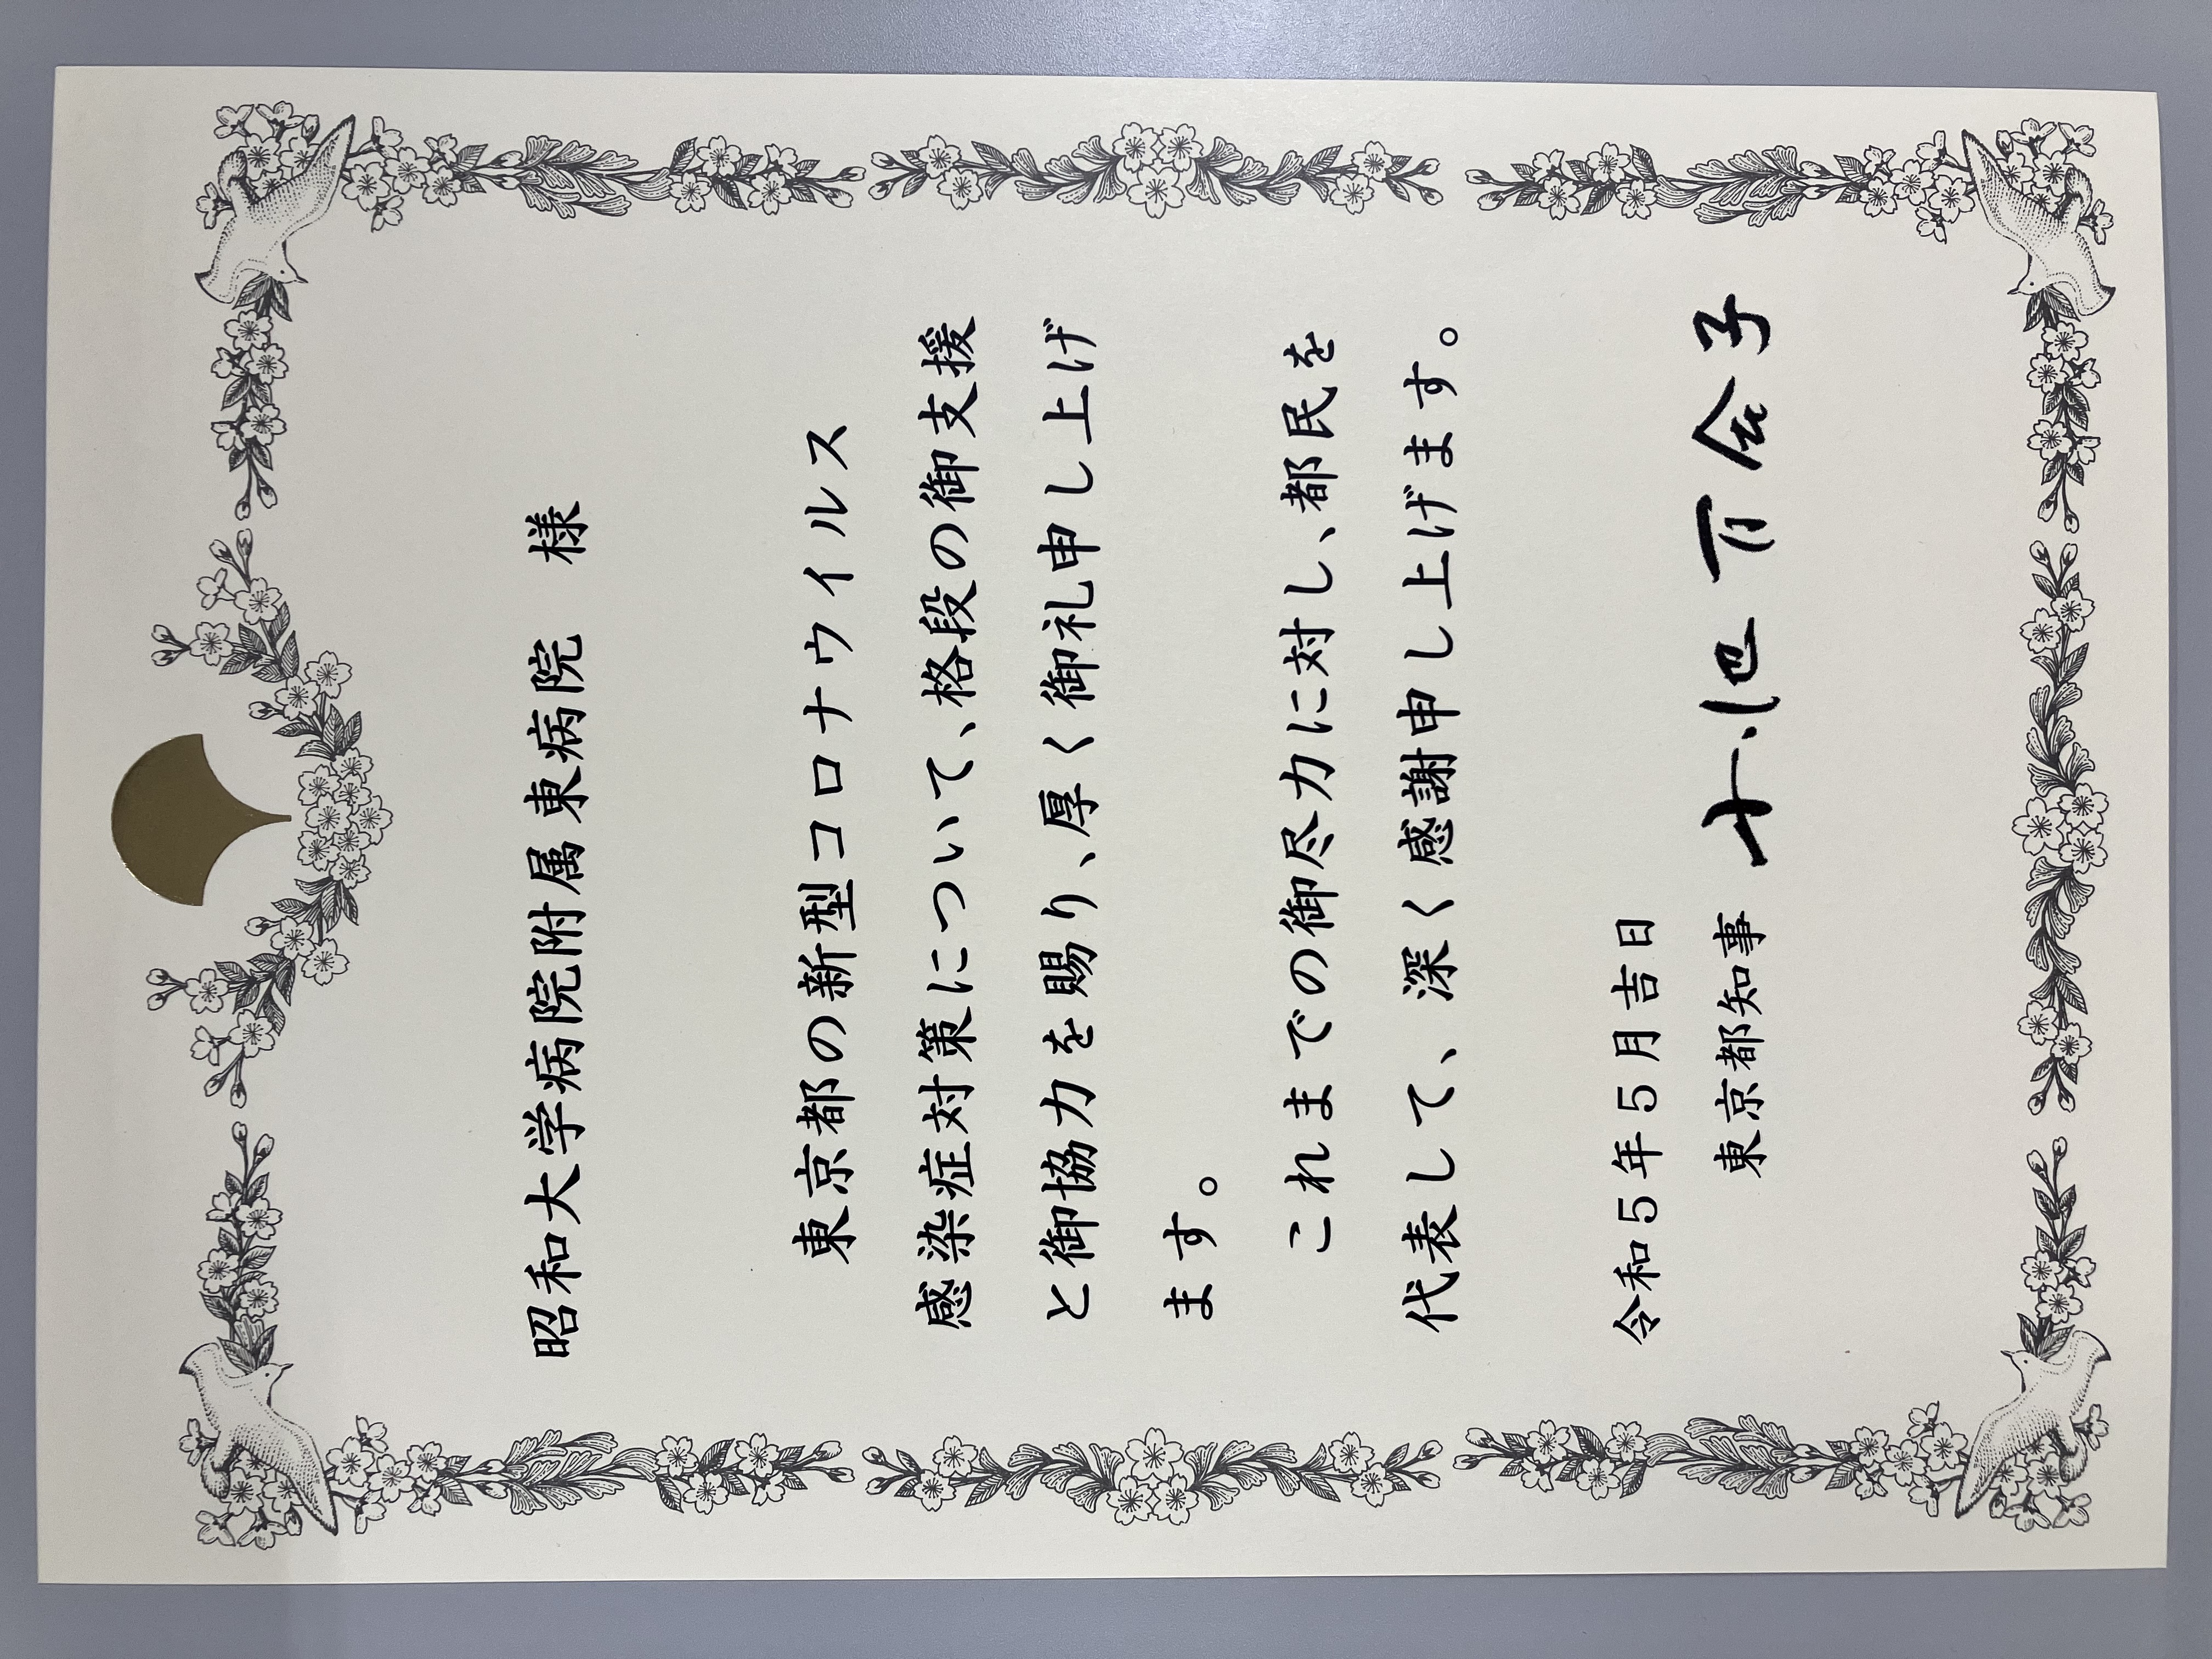 昭和大学病院附属東病院　様
東京都の新型コロナウイルス
感染症対策について、格段の御支援
と御協力を賜り、厚く御礼申し上げ
ます。
これまでの御尽力に対し、都民を
代表して、深く感謝申し上げます。
令和5年5月吉日
東京都知事　小池百合子